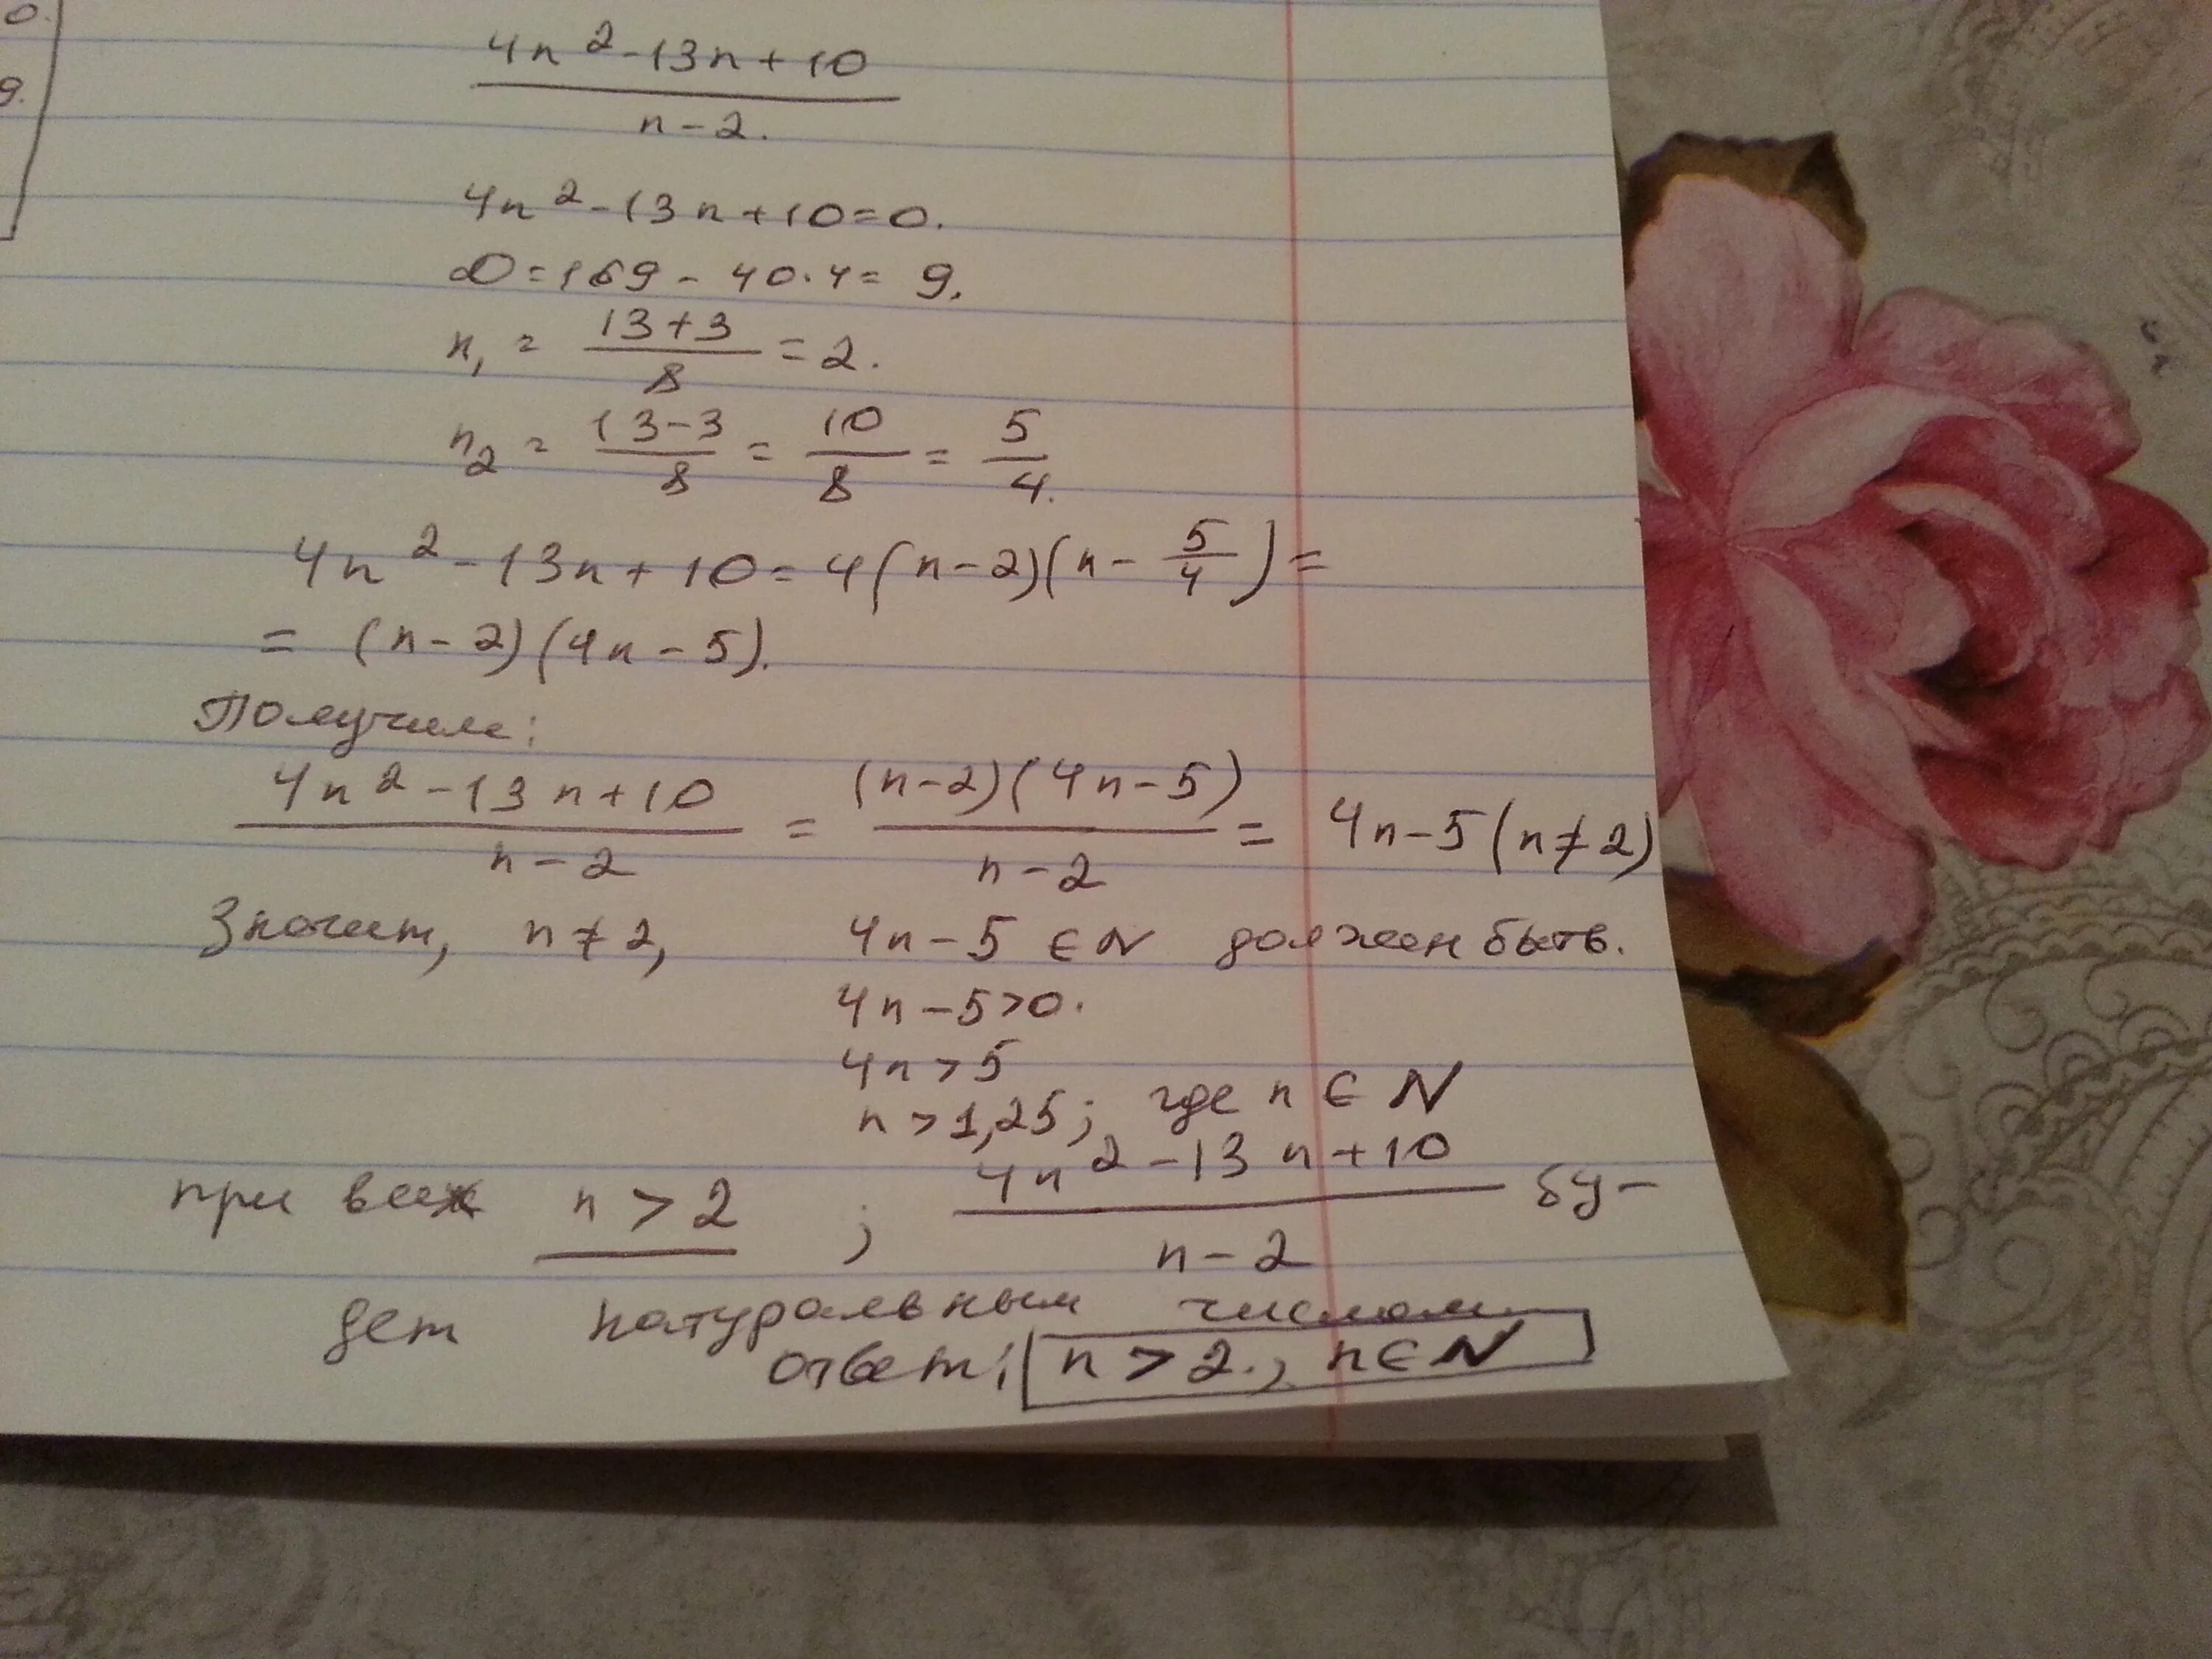 0.
9.
4n² - 13n + 10
n - 2.
4n² - 13n + 10 = 0.
D = 169 - 40·4 = 9.
n₁ = 13+3 / 8 = 2.
n₂ = 13-3 / 8 = 10 / 8 = 5 / 4.
4n² - 13n + 10 = 4(n-2)(n - 5/4) =
= (n-2)(4n-5).
Получим:
4n² - 13n + 10 / n - 2 = (n-2)(4n-5) / n - 2 = 4n-5 (n≠2)
Значит, n≠2, 4n-5 ∈ N должен быть.
4n - 5 > 0.
4n > 5
n > 1,25; где n ∈ N
при всех n > 2 ; 4n² - 13n + 10 / n - 2 бу-
дет натуральным числом
ответ: n > 2., n ∈ N